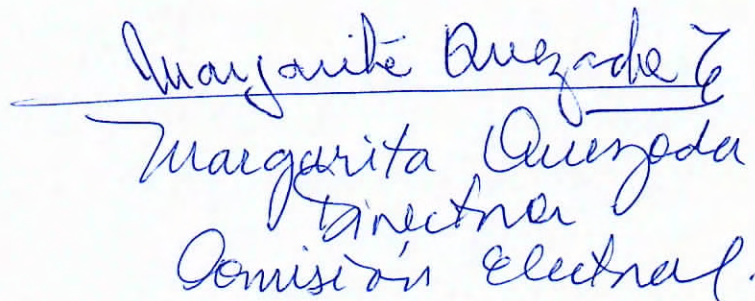 Margarita Quezada E
Margarita Quezada
Directora
Comisión Electoral.